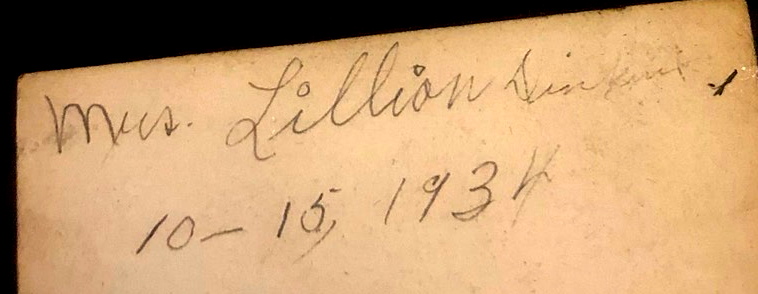 Mrs. Lillion
10-15, 1934